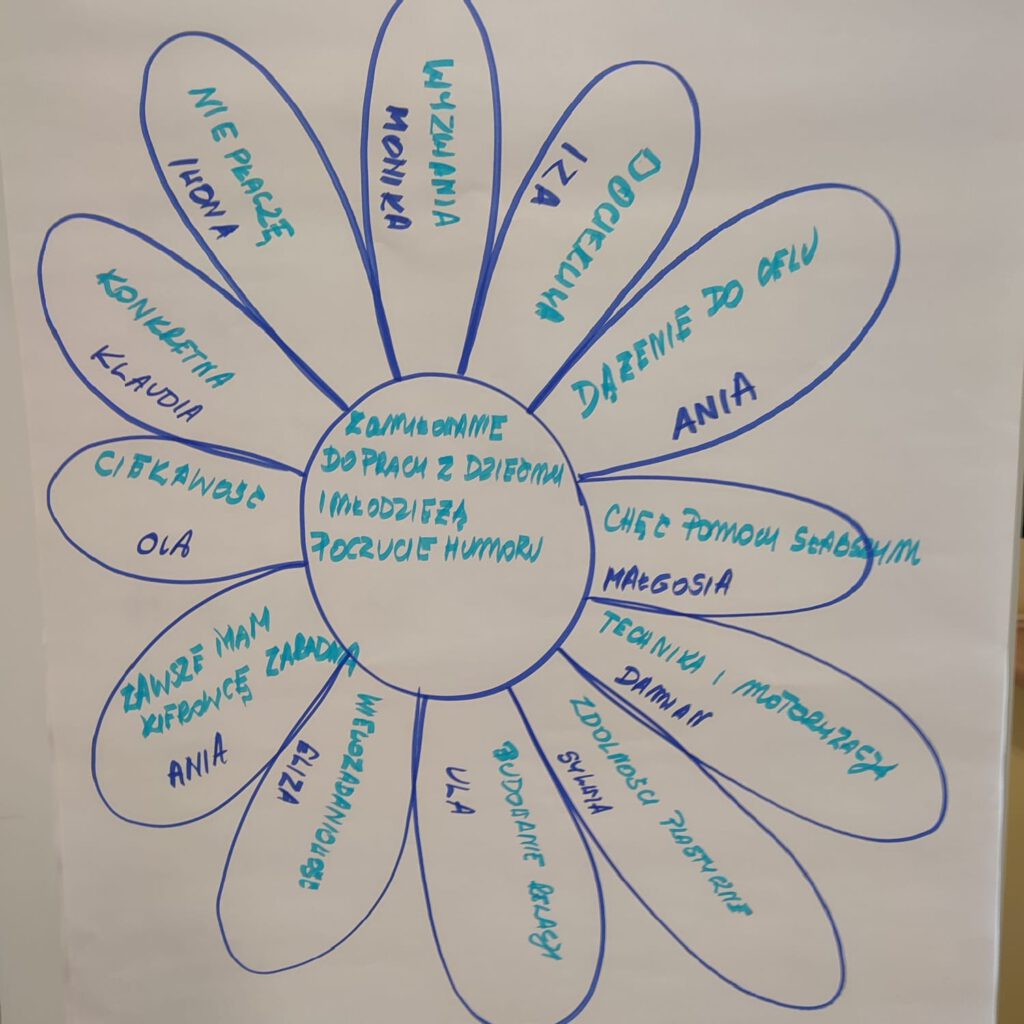 ZAMIŁOWANIE
DO PRACY Z DZIEĆMI
I MŁODZIEŻĄ
POCZUCIE HUMORU
WYZWANIA
MONIKA
DOCIEKLIWA
IZA
DĄŻENIE DO CELU
ANIA
CHĘĆ POMOCY SŁABSZYM
MAŁGOSIA
TECHNIKA I MOTORYZACJA
DAMIAN
ZDOLNOŚCI PLASTYCZNE
SYLWIA
BUDOWANIE RELACJI
ULA
WIELOZADANIOWOŚĆ
ELIZA
ZAWSZE MAM
KIEROWCĘ ZARADNA
ANIA
CIEKAWOŚĆ
OLA
KONKRETNA
KLAUDIA
NIE PŁACZĘ
IWONA